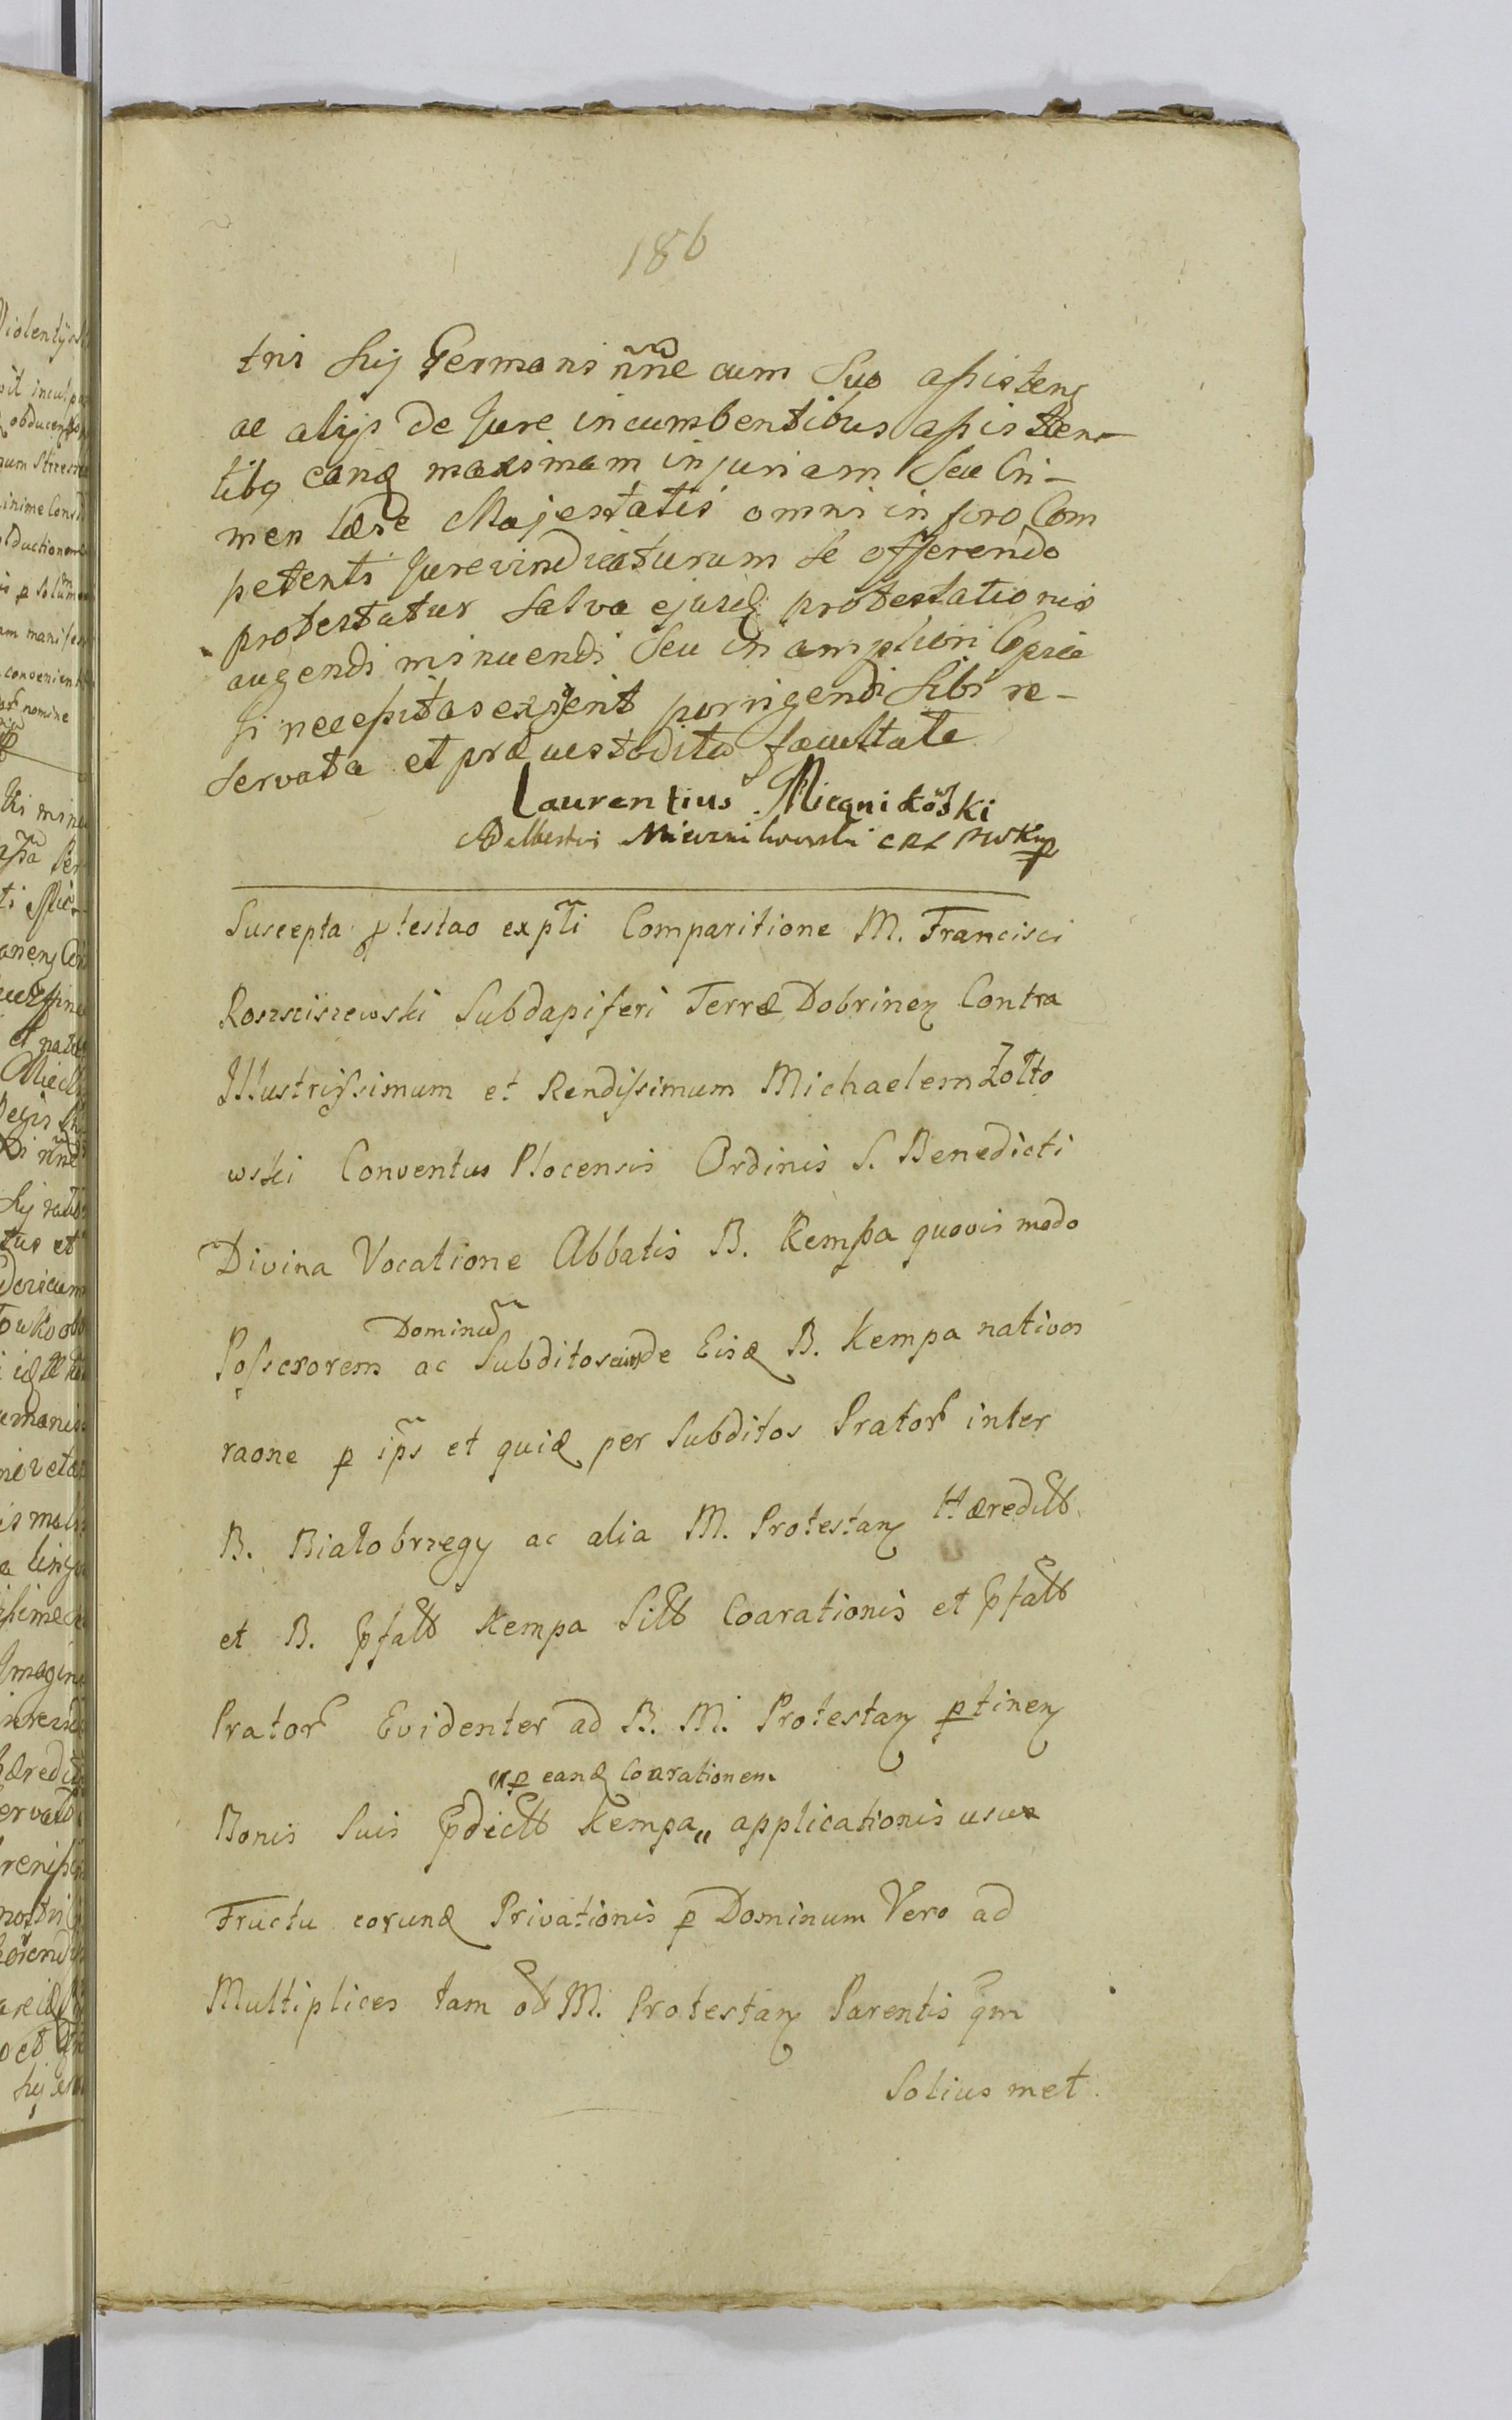 186
tris Sui Germani nñe cum Suo aſsisteng
ac alijs de Jure incumbentibus aſsisten-
tibq eanq maximam injuriam Seu Cri-
men læse Majestatis omni in foro Com
petenti Jure vindicaturum Se offerendo
protestatur Salva ejusdq protestationis
augendi minuendi Seu in ampliori Copia
Si neceſsitas exigerit porrigendi Sibi re-
servata et præcustodita facultate
Laurentius Miecznikowski
Adalbertus Miecznikowski
Suscepta ptestao expti Comparitione M. Francisci
Roszciszewski Subdapiferi Terræ Dobrineng Contra
Illustriſsimum et Rendiſsimum Michaelem Zołto
wski Conventus Plocensis Ordinis S. Benedicti
Divina Vocatione Abbatis B. Kempa quovis modo
Dominũ
Poſseſsorem ac Subditos de Eisq B. Kempa nativos
raone p ips et quidq per Subditos Prator inter
B. Białobrzegy ac alia M. Protestang Hæredit
et B. pfatt Kempa Sitt Coarationis et pfatt
Prator Evidenter ad B. M. Protestang ptineng
"p eandq Coarationem
Bonis Suis pdictt Kempa „ applicationis usu
Fructu eorundq Privationis p Dominum Vero ad
Multiplices tam ad M. Protestang Parentis qm
Solius met